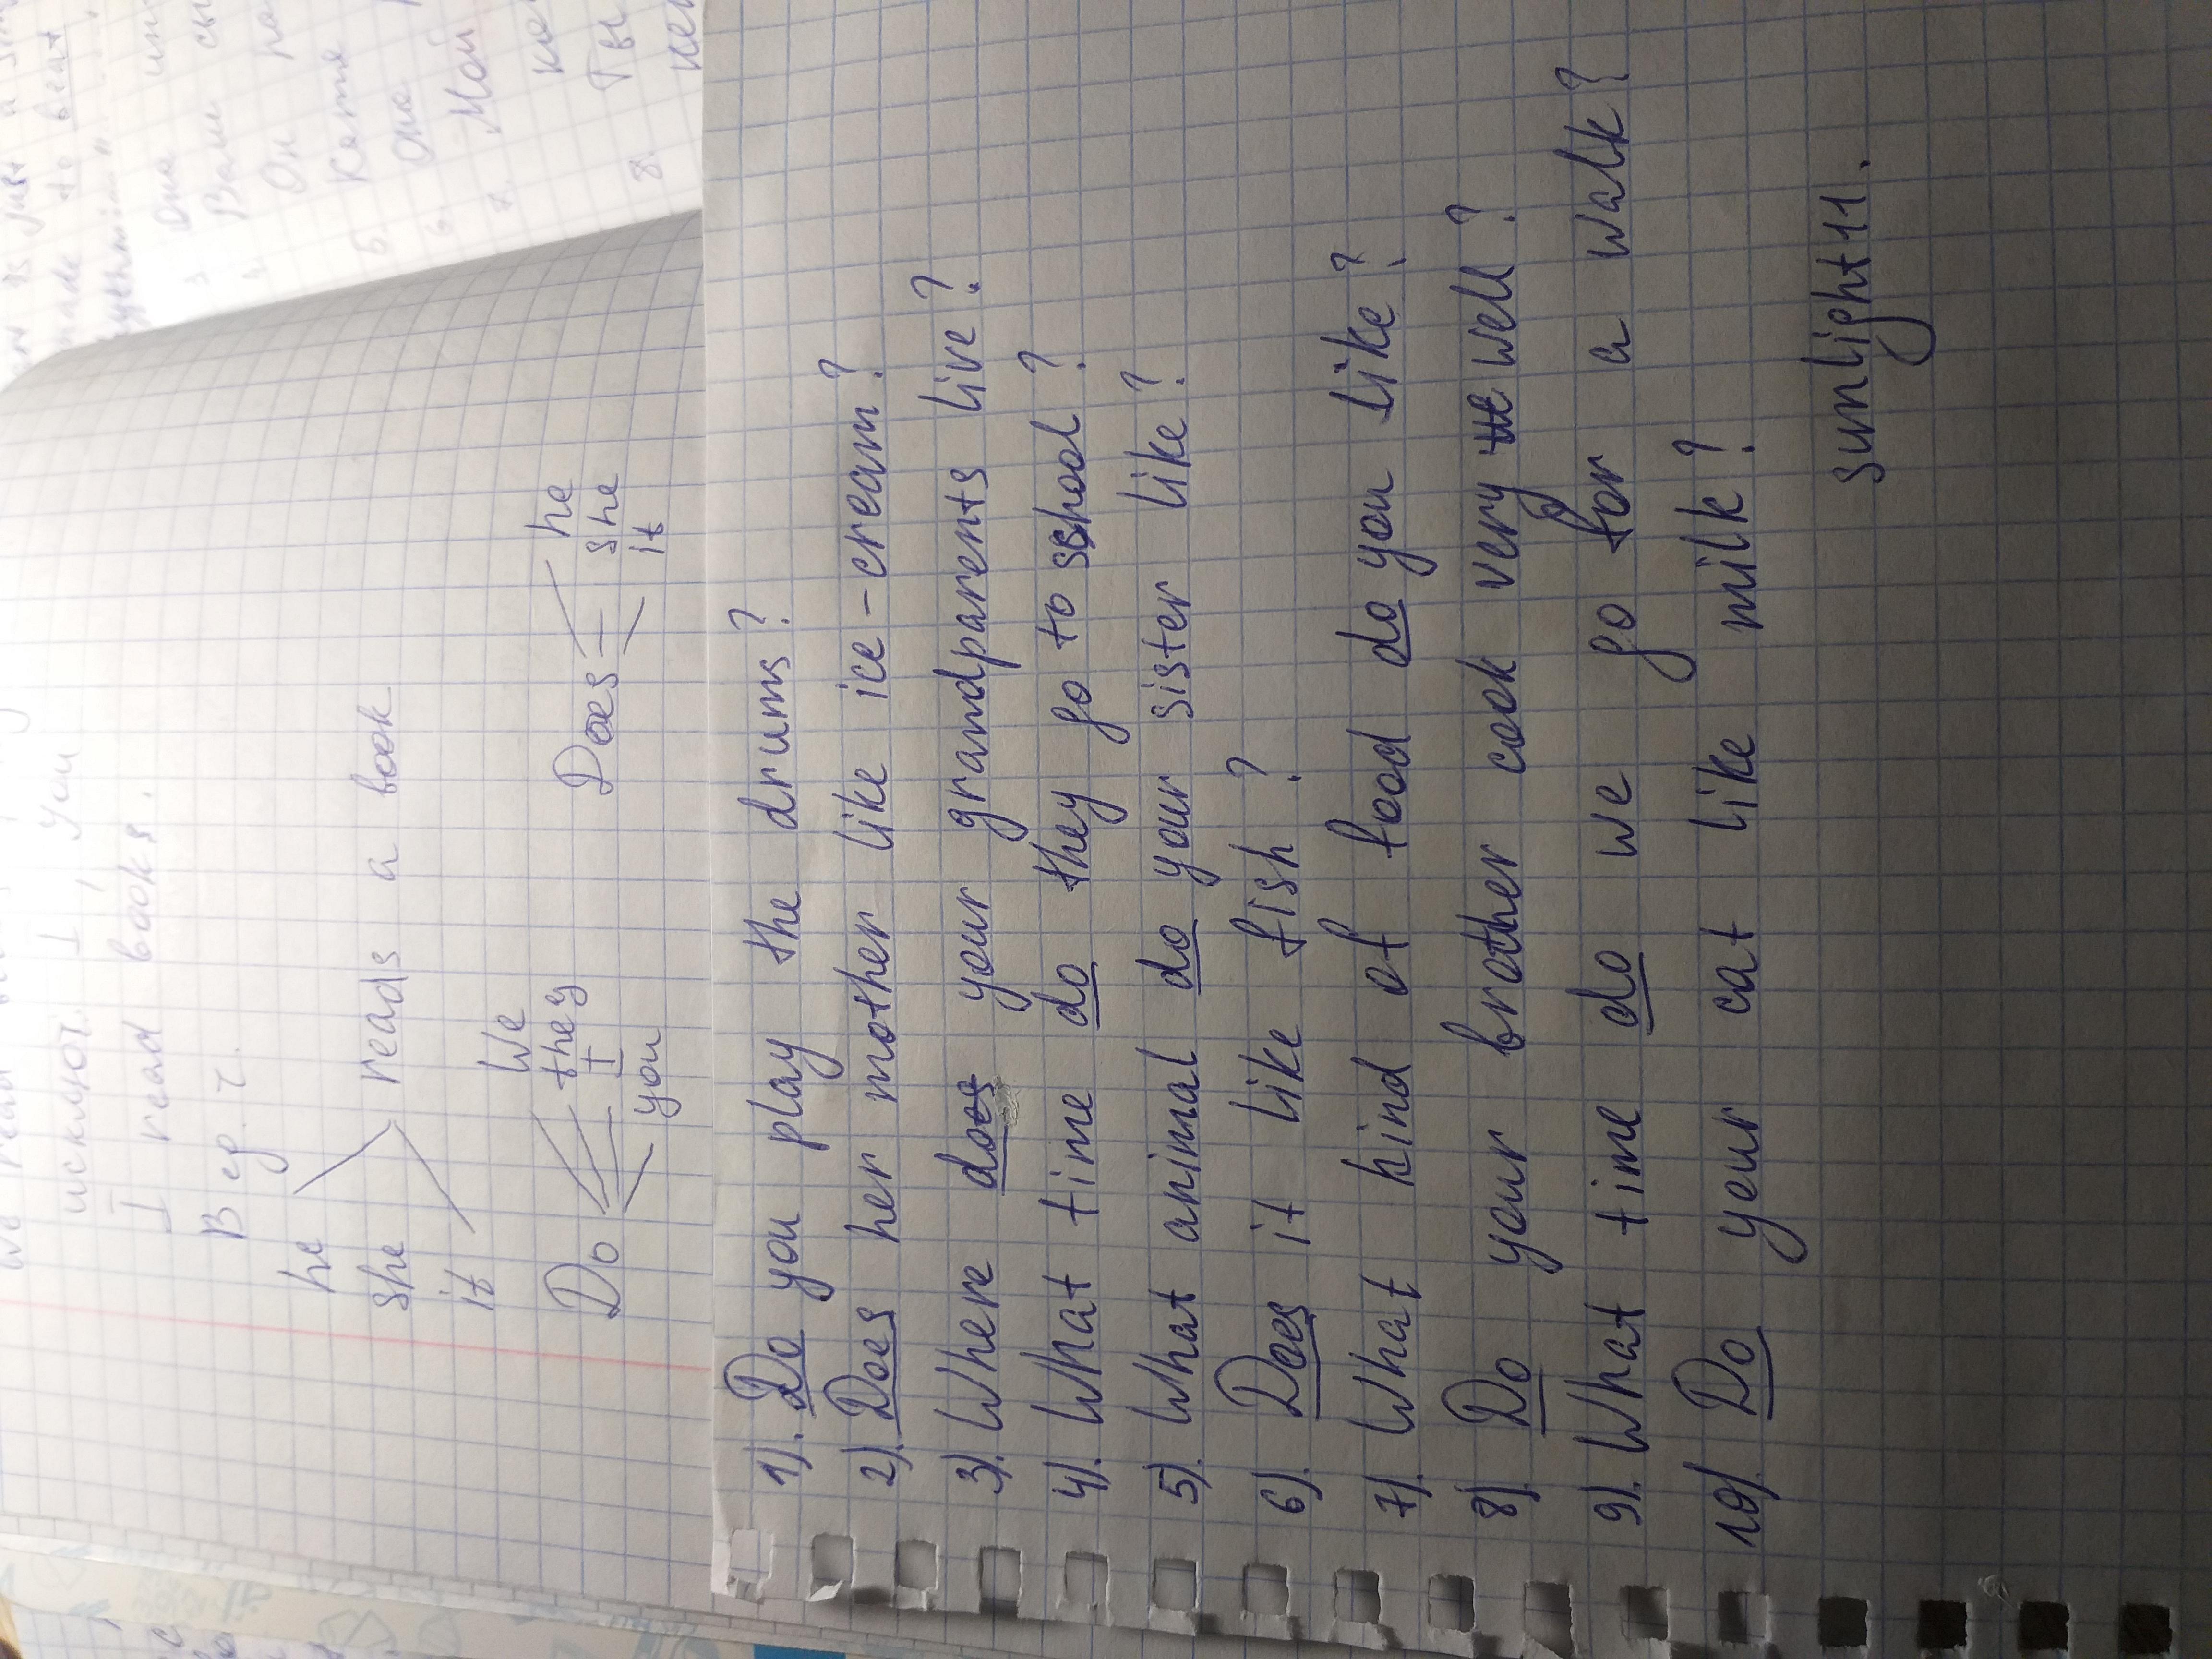 I, you
исключ.
I read books.
В ед. ч.
he
she reads a book
it
Do we they I you Does he she it
1). Do you play the drums?
2). Does her mother like ice-cream?
3). Where does your grandparents live?
4). What time do they go to school?
5). What animal do your sister like?
6). Does it like fish?
7). What kind of food do you like?
8). Do your brother cook very well?
9). What time do we go for a walk?
10) Do your cat like milk?
sunlight11.
made to beat
Она
Вам
Он
Катя
5. Она
6. Мой
7.
Ты
8.